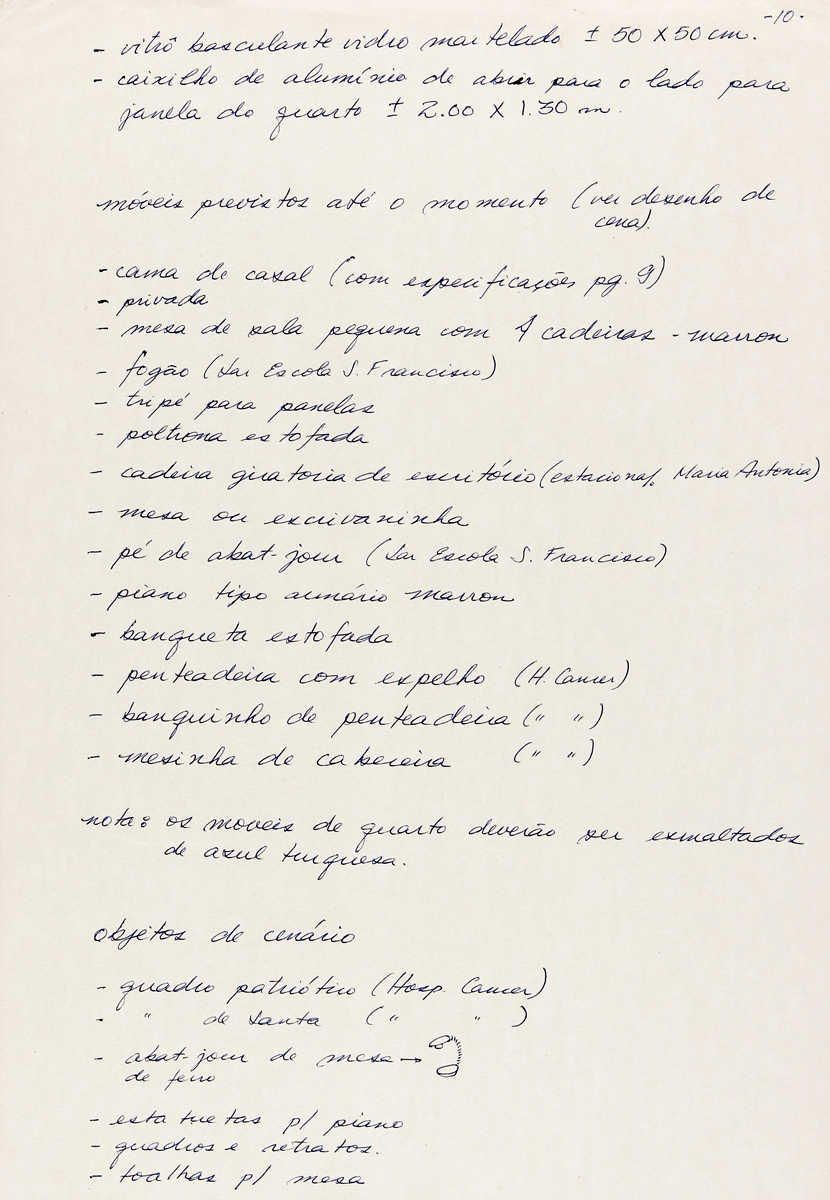 -10-
- vitrô basculante vidro martelado ± 50 X 50 cm.
- caixilho de alumínio de abrir para o lado para
janela do quarto ± 2.00 X 1.30 m.
móveis previstos até o momento (ver desenho de
cena).
- cama de casal (com especificações pg. 9)
- privada
- mesa de sala pequena com 4 cadeiras - marron
- fogão (Lar Escola S. Francisco)
- tripé para panelas
- poltrona estofada
- cadeira giratoria de escritório (estacionaf. Maria Antonia)
- mesa ou escrivaninha
- pé de abat-jour (Lar Escola S. Francisco)
- piano tipo armário marron
- banqueta estofada
- penteadeira com espelho (H. Cancer)
- banquinho de penteadeira (" ")
- mesinha de cabeceira (" ")
nota: os moveis de quarto deverão ser esmaltados
de azul turquesa.
objetos de cenário
- quadro patriótico (Hosp. Cancer)
- " de Santa (" ")
- abat-jour de mesa →
de ferro
- estatuetas p/ piano
- quadros e retratos.
- toalhas p/ mesa